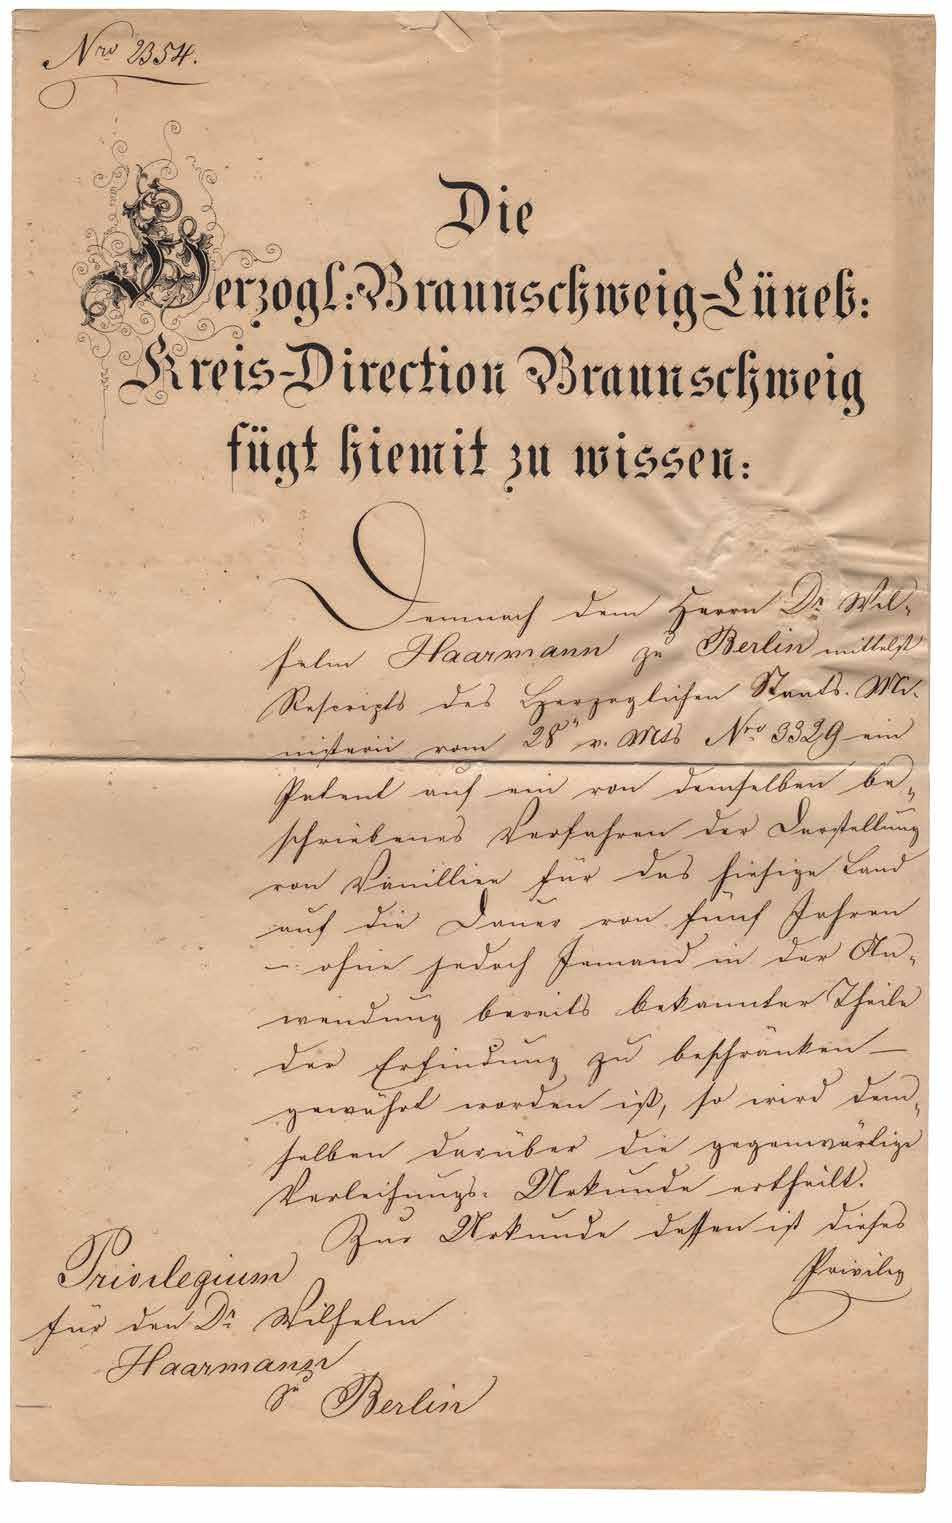 Nro 2354.
Die
Herzogl: Braunschweig-Lüneb:
Kreis-Direction Braunschweig
fügt hiemit zu wissen:
Demnach dem Herrn Dr Wil-
helm Haarmann zu Berlin mittelst
Rescripts des Herzoglichen Staats-Mi-
nisterii vom 28n v. Mts Nro 3329 ein
Patent auf ein von demselben be-
schriebenes Verfahren der Darstellung
von Vanillien für das hiesige Land
auf die Dauer von fünf Jahren
– ohne jedoch Jemand in der An-
wendung bereits bekannter Theile
der Erfindung zu beschränken –
gewährt worden ist, so wird dem-
selben darüber die gegenwärtige
Verleihungs-Urkunde ertheilt.
Zur Urkunde dessen ist dieses
Privileg
Privilegium
für den Dr Wilhelm
Haarmann
zu Berlin